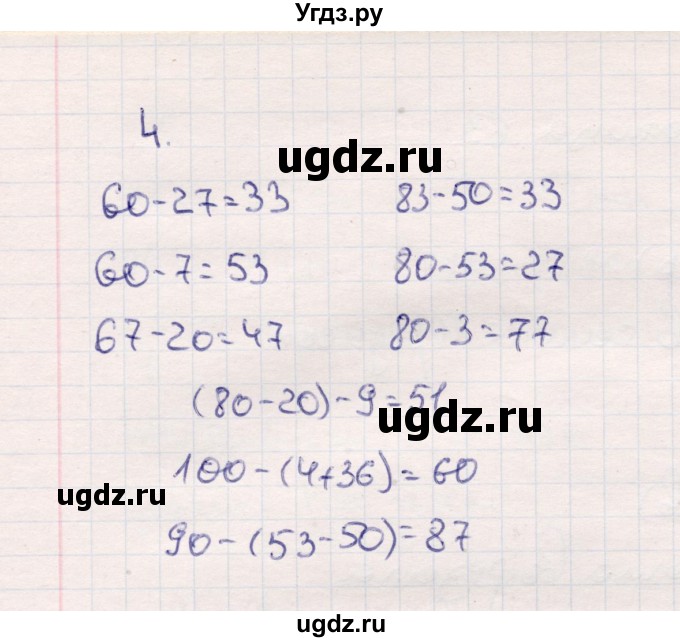 Угдз.ру
4.
ugdz.ru
60-27=33 83-50=33
60-7=53 80-53=27
67-20=47 80-3=77
(80-20)-9=51
ugdz.ru
100-(4+36)=60
ugdz.ru
90-(53-50)=87
ugdz.ru